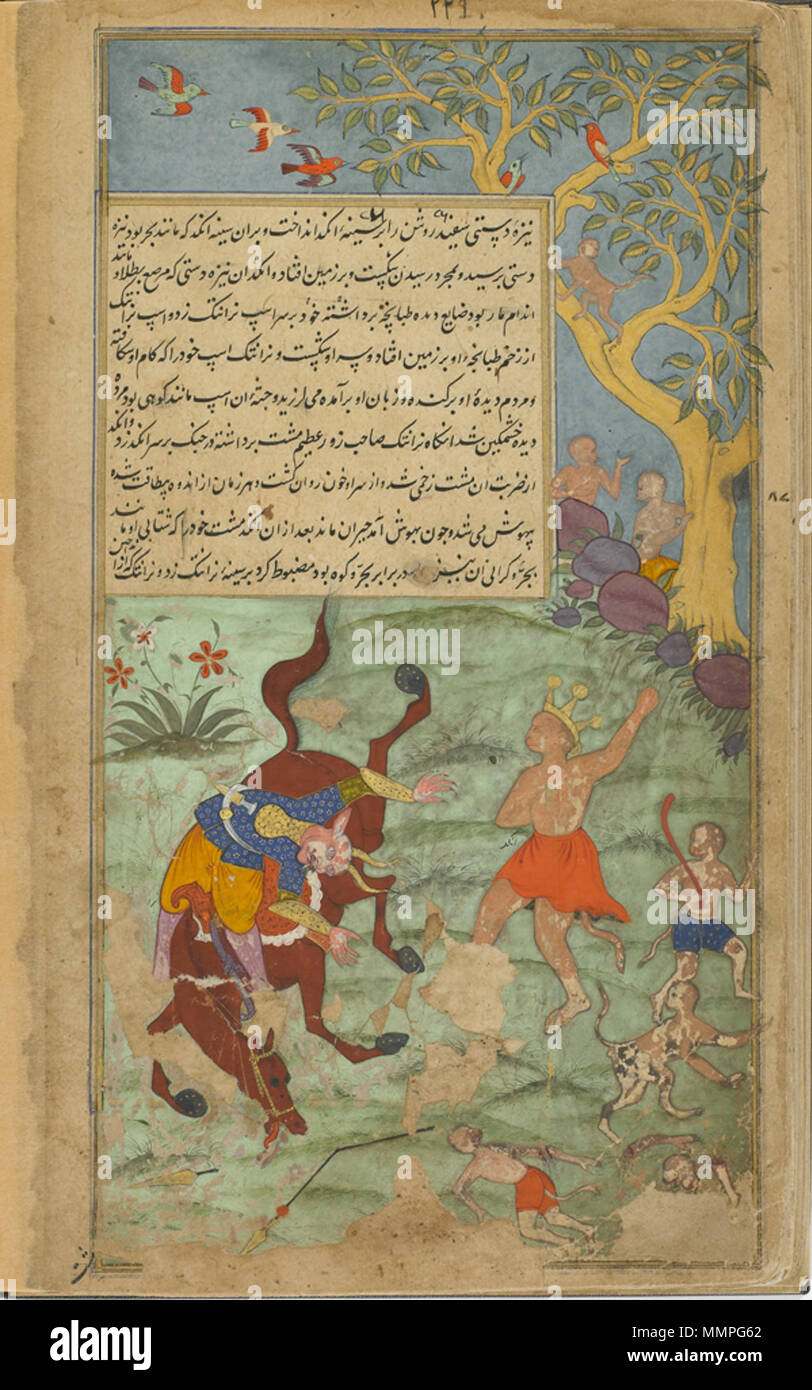 ۲۲۹
نیزهٔ دستی سفید روشن را بر سینهٔ انکد انداخت و بران سینه انکد که مانند بجر بود نیزه
دستی رسید و بمجرد رسیدن بشکست و بر زمین افتاد و انکد ان نیزه دستی که مرصع بطلا و مانند
اندام مار بود ضایع دیده طبانچه برداشته خود بر سر اسپ نرانتک زد و اسپ نرانتک
از زخم طبانچه او بر زمین افتاد و سر او بشکست و نرانتک اسپ خود را که کام او شکافته
و مردم دیدهٔ او برکنده و زبان او برآمده می لرزید و جثهٔ ان اسپ مانند کوهی بود مرده
دیده خشمکین شد انکاه نرانتک صاحب زور عظیم مشت برداشته در جنک بر سر انکد زد و انکد
از ضربت ان مشت زخمی شد و از سر او خون روان کشت و هر زمان از اندوه بیطاقت شده
بیهوش می شد و چون بهوش آمد حیران ماند بعد از ان انکد مشت خود را که شتابی او مانند
بجر و کرانی ان نیز در برابر بجر و کوه بود مضبوط کرد بر سینهٔ نرانتک زد و نرانتک را
انکد
۸۷
alamy
Image ID: MMPG62
www.alamy.com